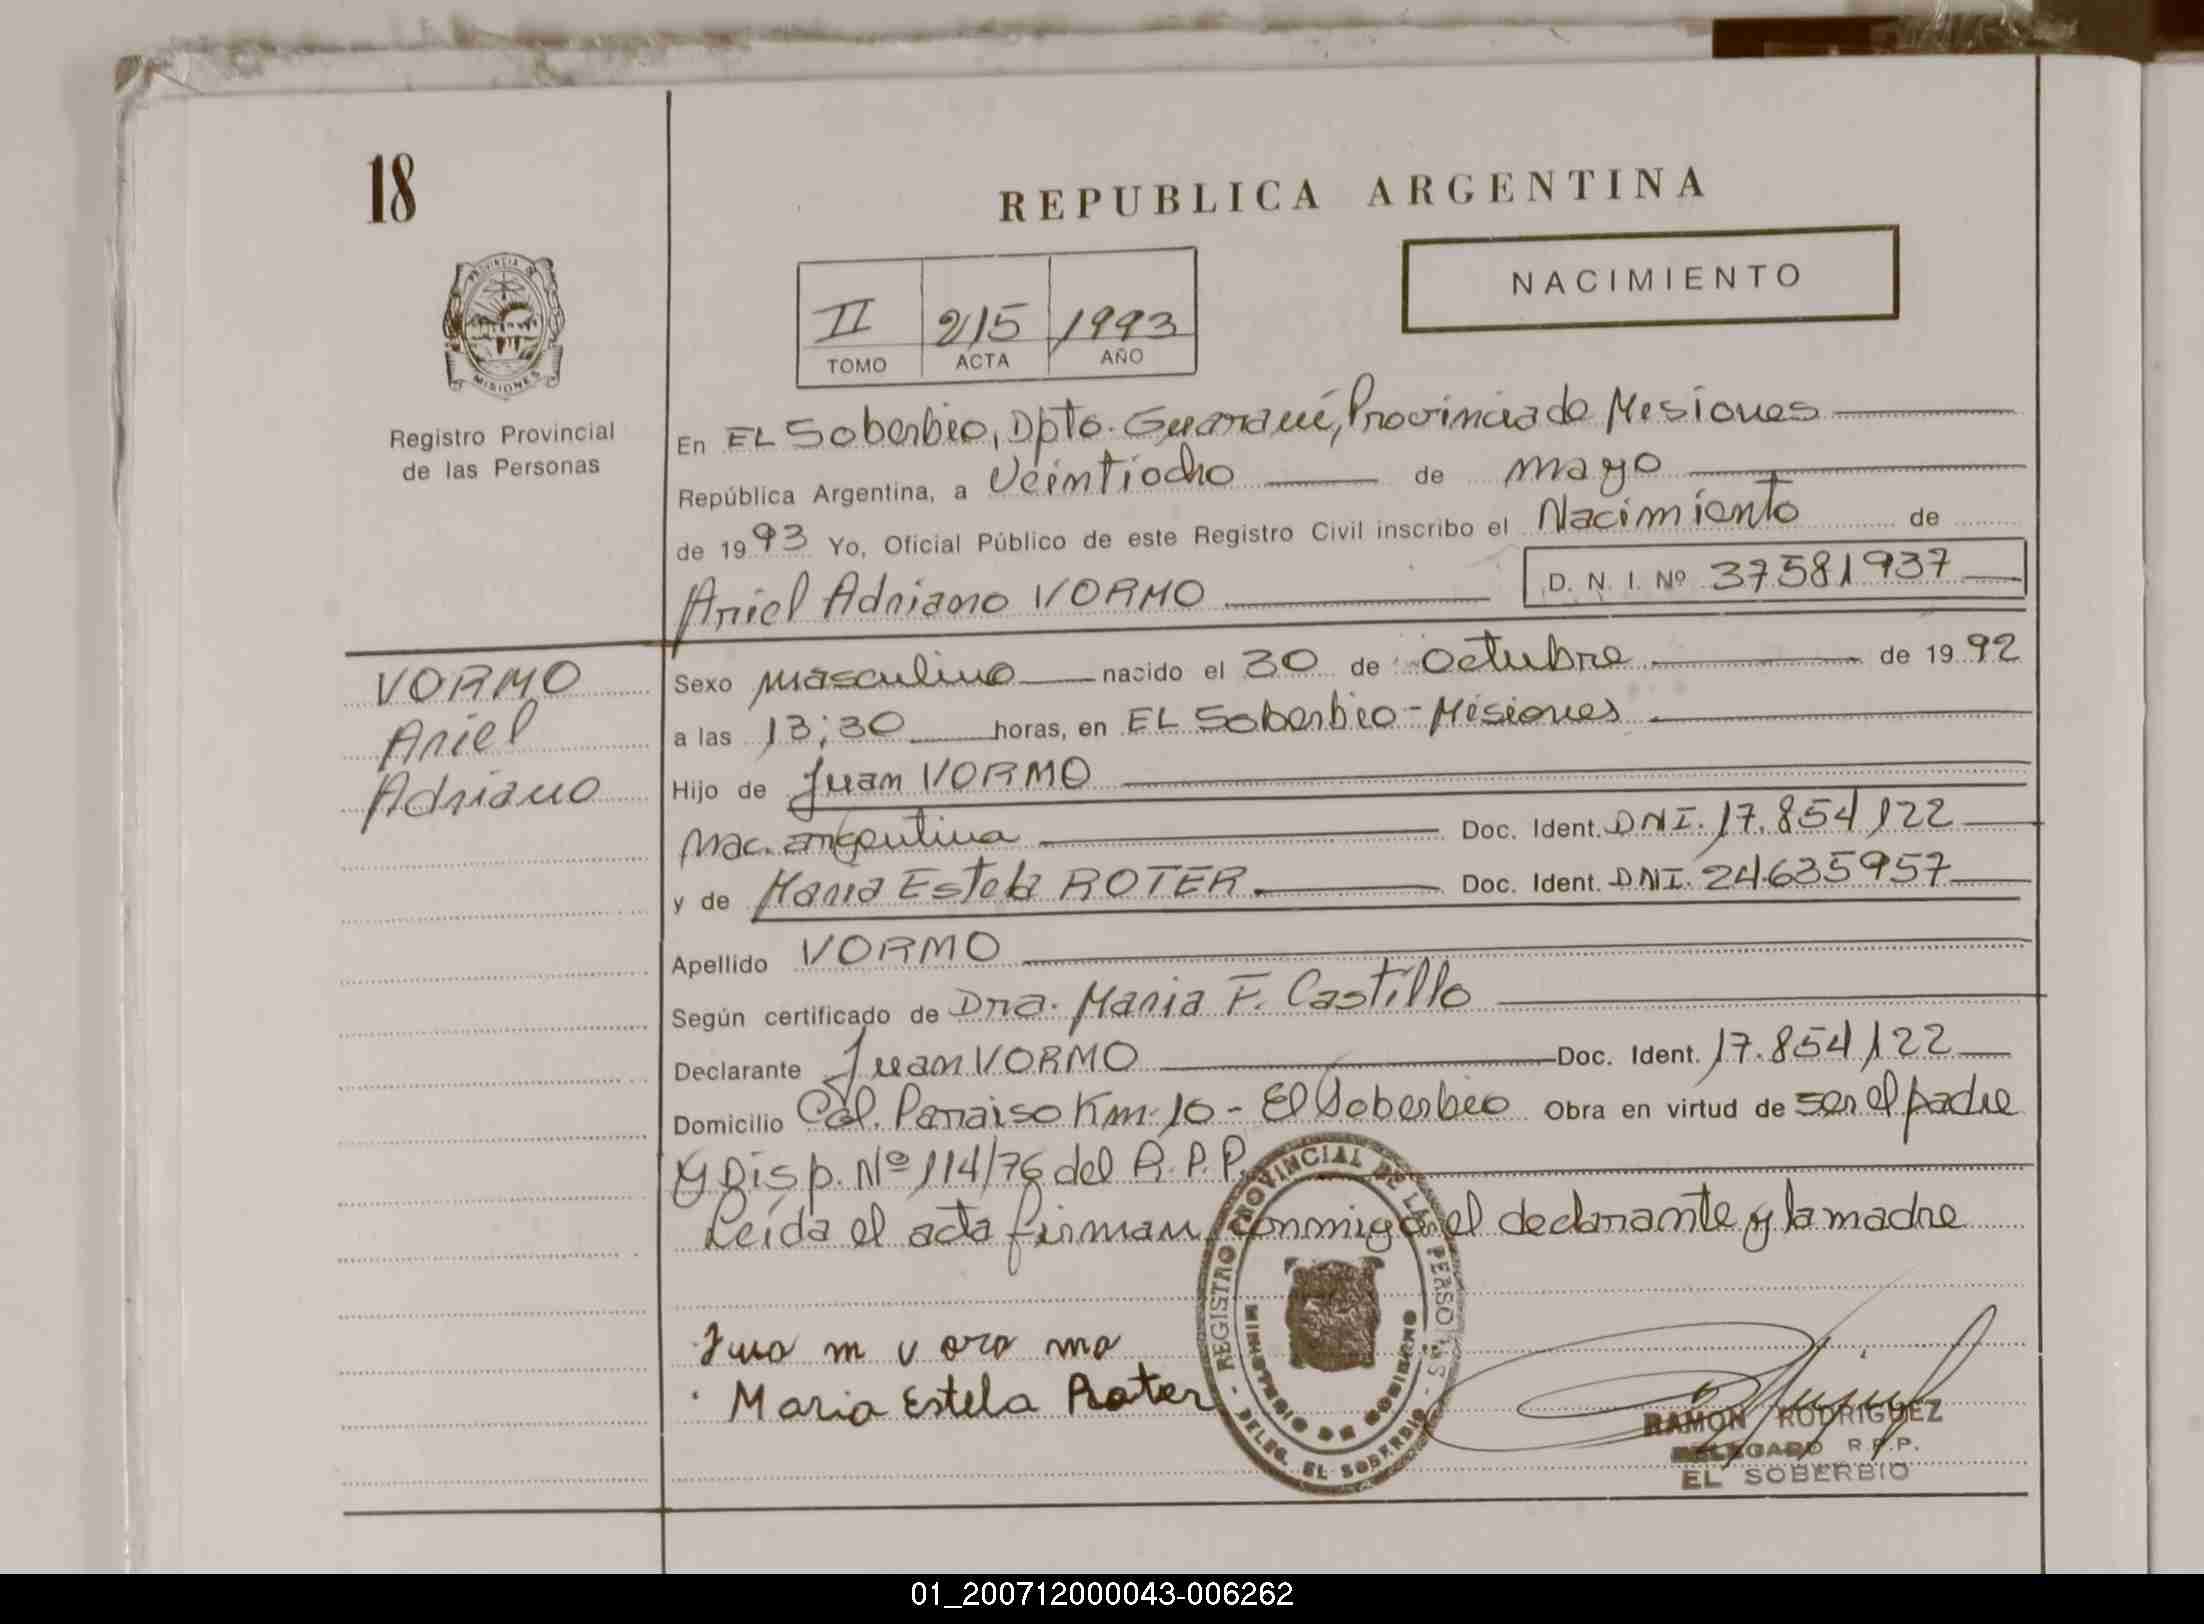 18
REPUBLICA ARGENTINA
NACIMIENTO
II 215 1993
TOMO ACTA AÑO
PROVINCIA DE
MISIONES
Registro Provincial
de las Personas
En EL Soberbio, Dpto. Guaraní, Provincia de Misiones
República Argentina, a Veintiocho de mayo
de 1993 Yo, Oficial Público de este Registro Civil inscribo el Nacimiento de
Ariel Adriano VORMO D. N. I. Nº 37581937
VORMO
Ariel
Adriano
Sexo masculino nacido el 30 de octubre de 1992
a las 13:30 horas, en EL Soberbio - Misiones
Hijo de Juan VORMO
Nac. argentina Doc. Ident. DNI. 17.854122
y de Maria Estela ROTER Doc. Ident. DNI. 24.635957
Apellido VORMO
Según certificado de Dra. Maria F. Castillo
Declarante Juan VORMO Doc. Ident. 17.854122
Domicilio Col. Paraiso Km. 10 - El Soberbio Obra en virtud de ser el padre
y Disp. Nº 114/76 del R.P.P.
Leída el acta firman conmigo el declarante y la madre
REGISTRO PROVINCIAL DE LAS PERSONAS
MINISTERIO DE GOBIERNO
- DELEG. EL SOBERBIO -
Jua m v oro mo
Maria Estela Roter
RAMON RODRIGUEZ
DELEGADO R.P.P.
EL SOBERBIO
01_200712000043-006262